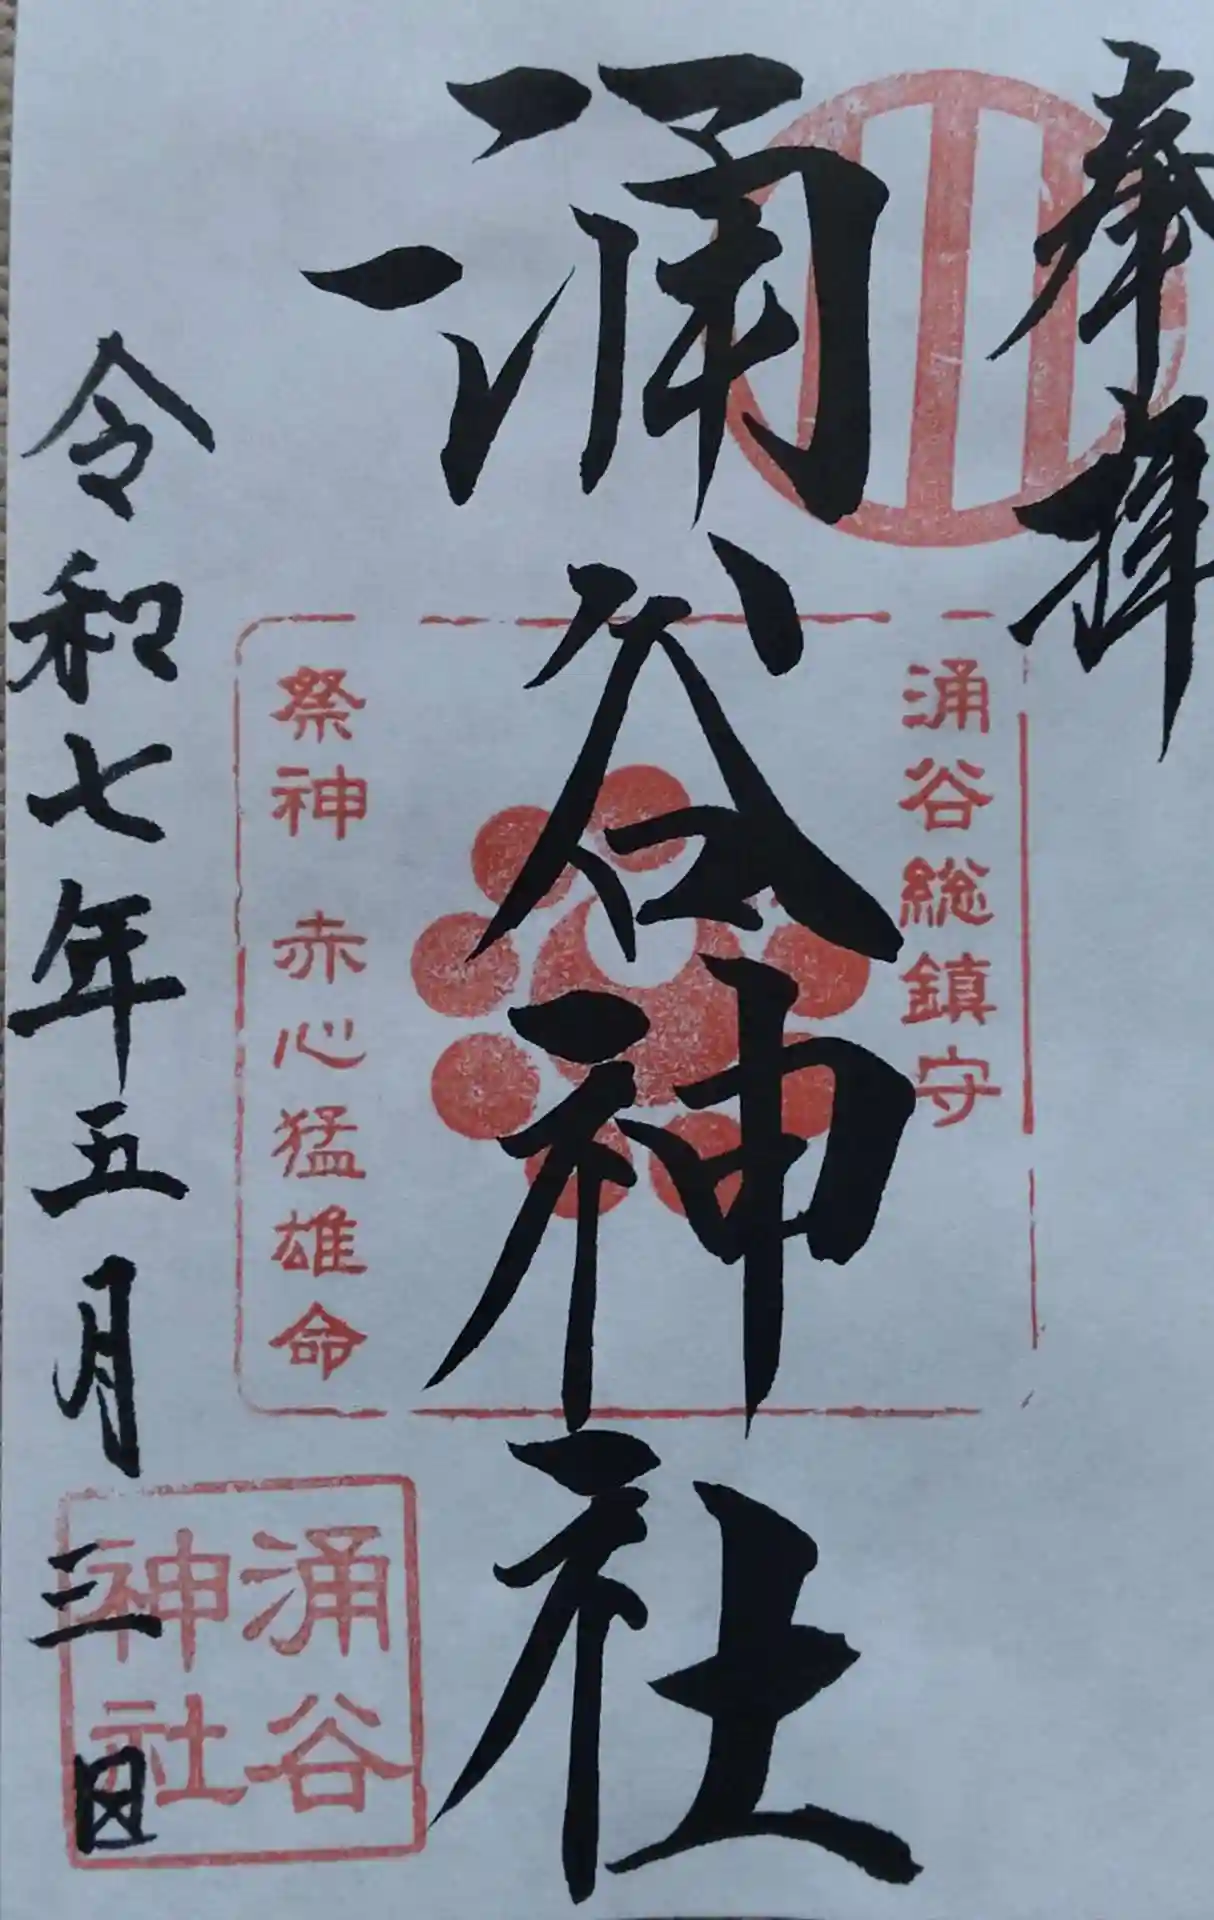 奉拝
涌谷総鎮守
涌谷神社
祭神 赤心猛雄命
涌谷
神社
令和七年五月三日